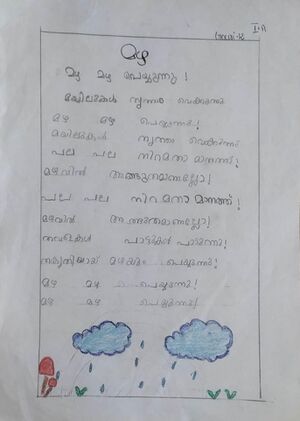 II-A
മഴ
മഴ മഴ പെയ്യുന്നു !
മയിലുകൾ നൃത്തം വെക്കുന്നു
മഴ മഴ പെയ്യുന്നു !
മയിലുകൾ നൃത്തം വെക്കുന്നു
പല പല നിറമതാ മാനത്ത് !
മഴവിൽ അത്ഭുതമാണല്ലോ !
പല പല നിറമതാ മാനത്ത് !
മഴവിൽ അത്ഭുതമാണല്ലോ !
തവളകൾ പാട്ടുകൾ പാടുന്നു !
മഴയും പെയ്യുന്നു !
മഴ മഴ പെയ്യുന്നു !
മഴ മഴ പെയ്യുന്നു !